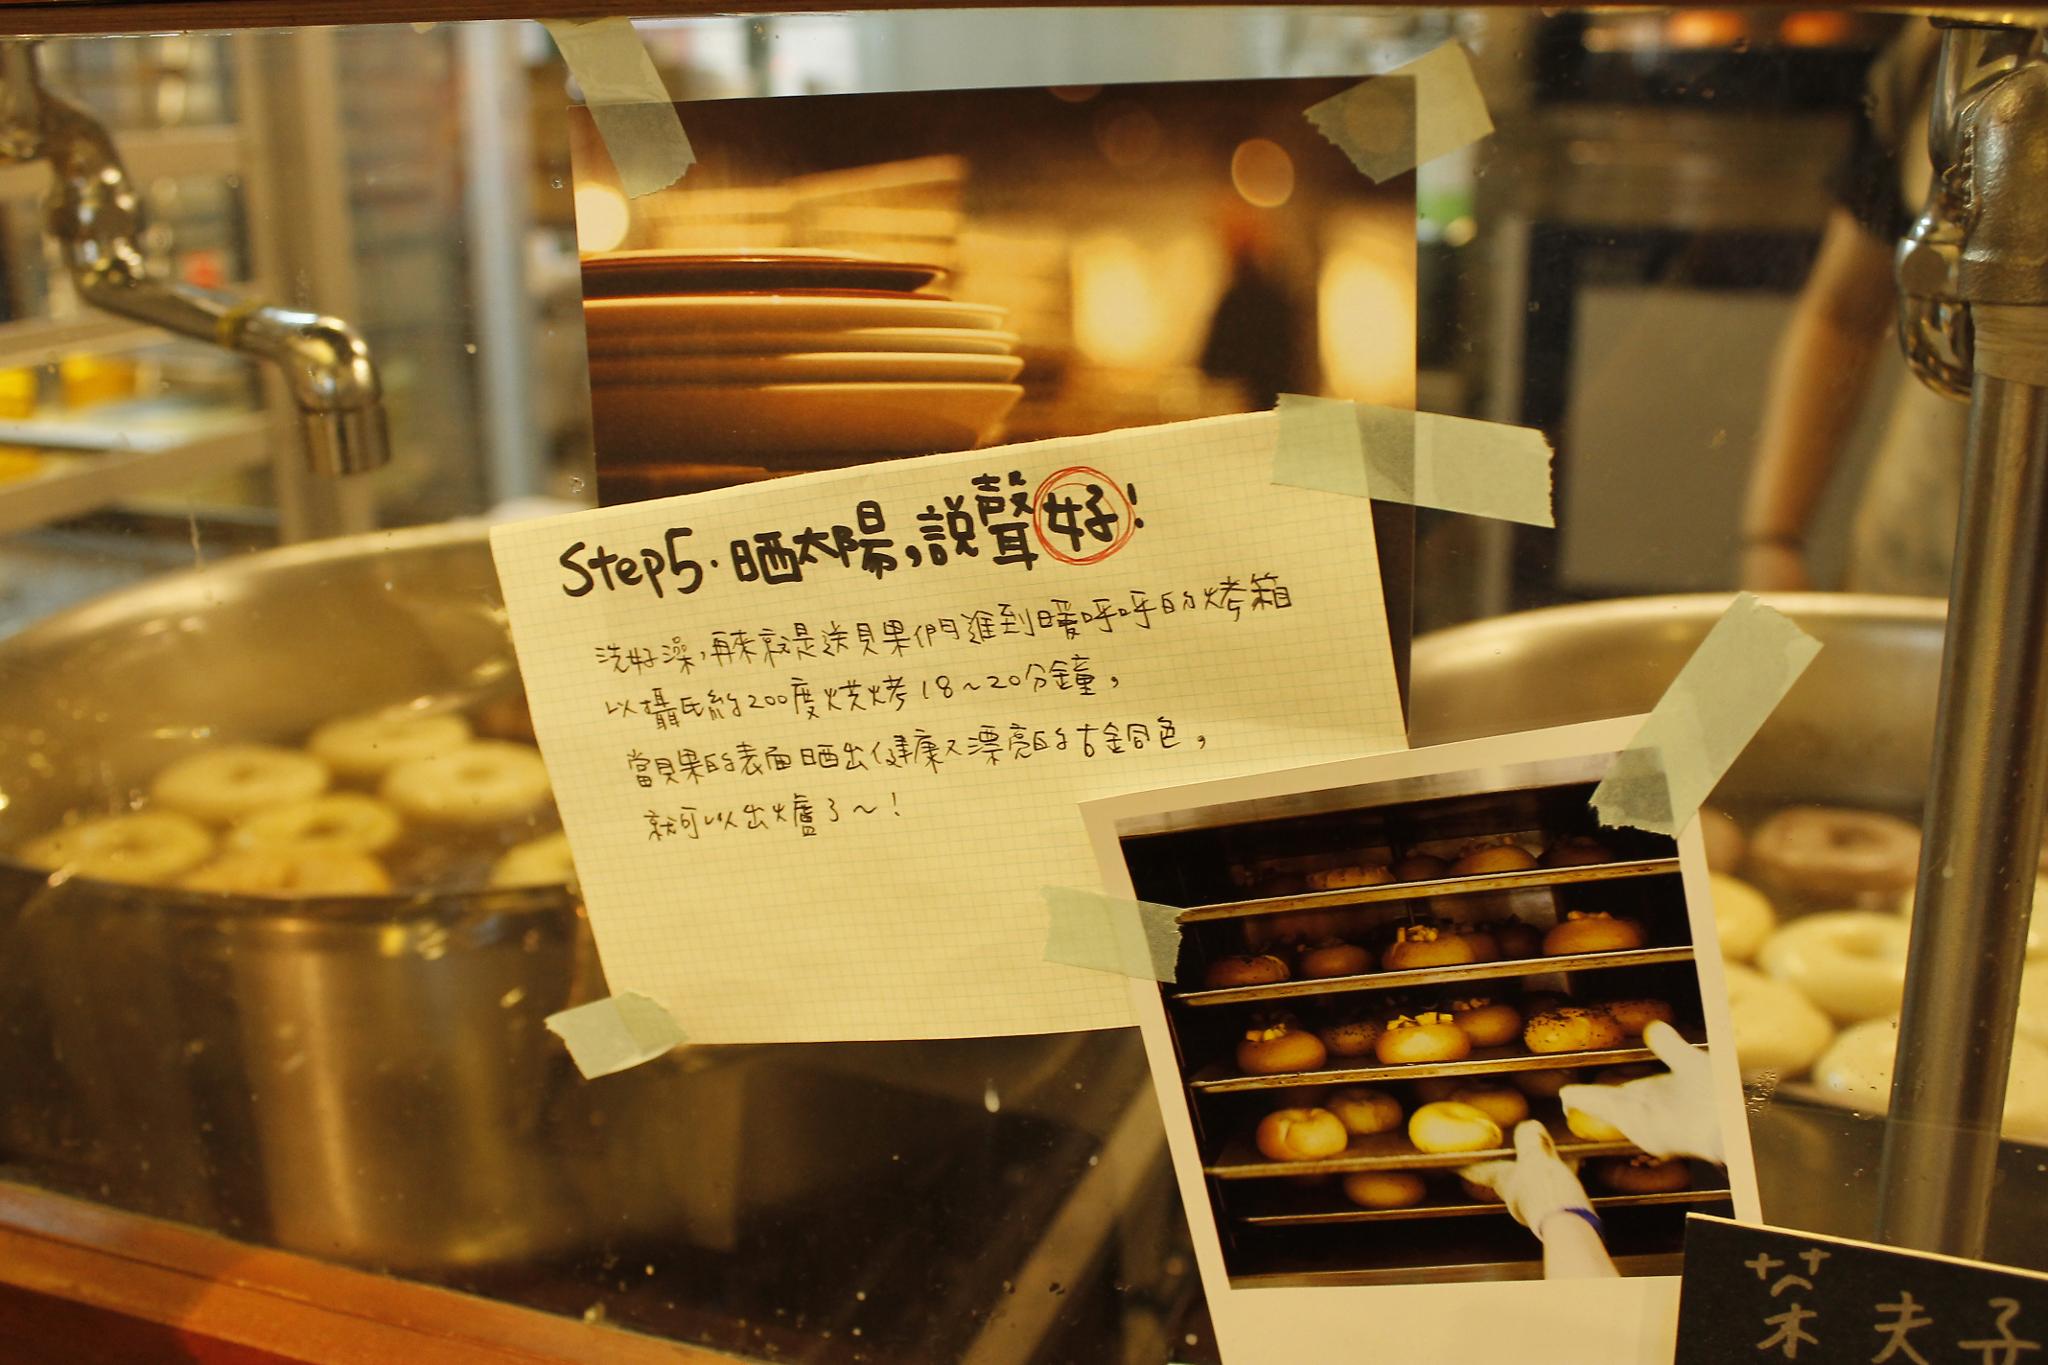 Step5.晒太陽,說聲好!
洗好澡,再來就是送貝果們進到暖呼呼的烤箱
以攝氏約200度烘烤18~20分鐘,
當貝果的表面晒出健康又漂亮的古銅色,
就可以出爐了~!
茶夫子